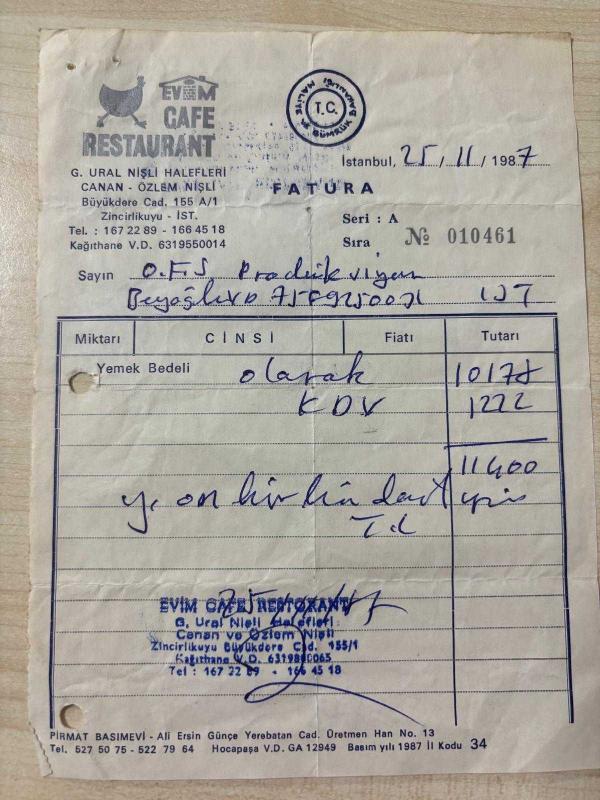 EVİM
CAFE
RESTAURANT
T.C.
MALİYE VE GÜMRÜK BAKANLIĞI
G. URAL NİŞLİ HALEFLERİ
CANAN - ÖZLEM NİŞLİ
Büyükdere Cad. 155 A/1
Zincirlikuyu - İST.
Tel. : 167 22 89 - 166 45 18
Kağıthane V.D. 6319550014
İstanbul, 25/11/1987
FATURA
Seri : A
Sıra № 010461
Sayın O.F.S. Prodüksiyon
Beyoğlu V.D 
Miktarı CİNSİ Fiatı Tutarı
Yemek Bedeli olarak 10178
KDV 1222
11400
Y. on bir bin dört yüz
TL
EVİM CAFE RESTORANT
G. Ural Nişli Halefleri
Canan ve Özlem Nişli
Zincirlikuyu Büyükdere Cad. 155/1
Kağıthane V.D.
Tel : 167 22 89 - 166 45 18
PİRMAT BASIMEVİ - Ali Ersin Günçe Yerebatan Cad. Üretmen Han No. 13
Tel. 527 50 75 - 522 79 64 Hocapaşa V.D. GA 12949 Basım yılı 1987 İl Kodu 34